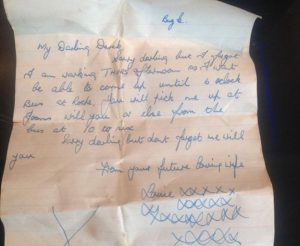 My Darling Derek
Sorry darling but I forgot
I am working this afternoon so I won't
be able to come up until 6 oclock
Bus at Rocks. You will pick me up at
Joans will you or else from the
bus at 10 to six
Sorry darling but dont forget me will
you
From your future loving wife
xxxxx
xxxxx
xxxxxxxx
xxxx